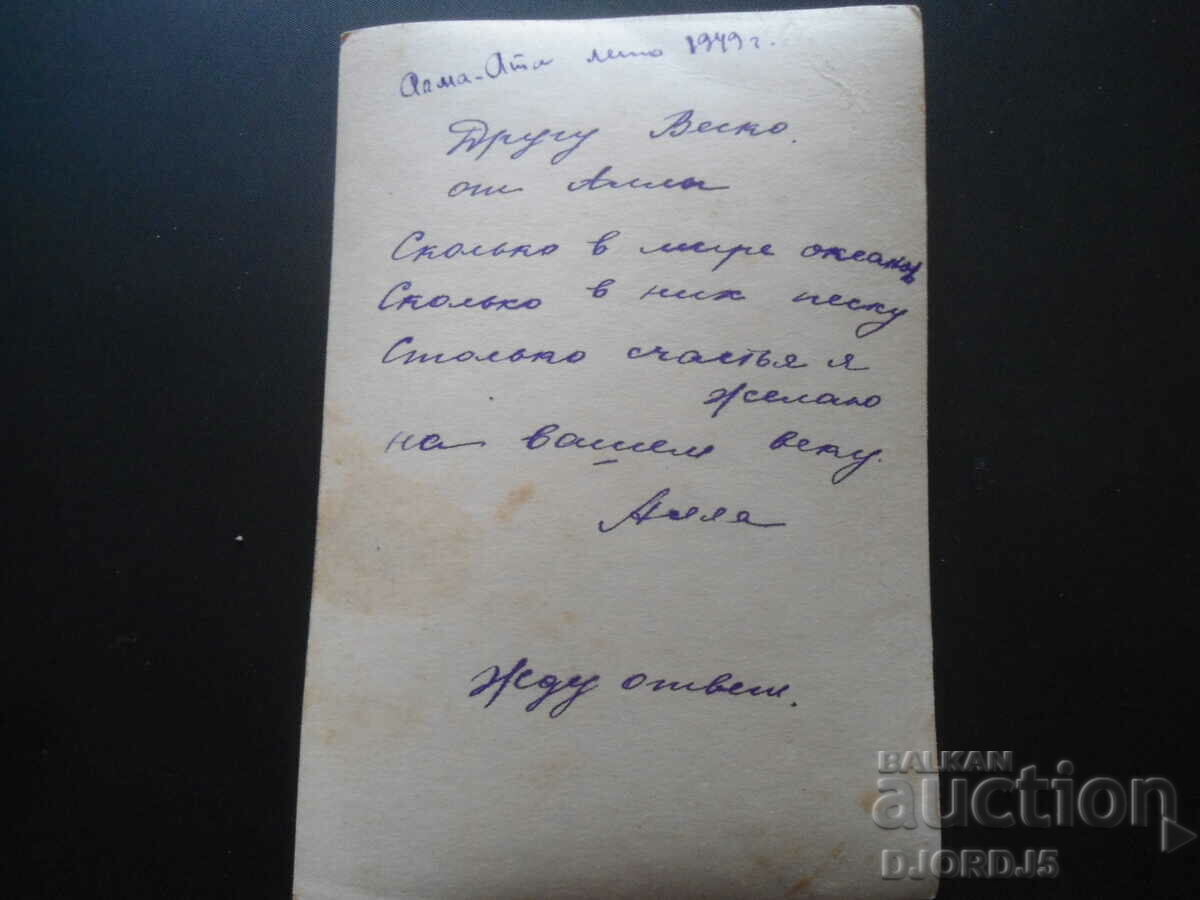 Алма-Ата лето 1949 г.
Другу Веско.
от Аллы
Сколько в мире океанов
Сколько в них песку
Столько счастья я
желаю
на вашем веку.
Алла
Жду ответ.
BALKAN
auction
DJORDJ5